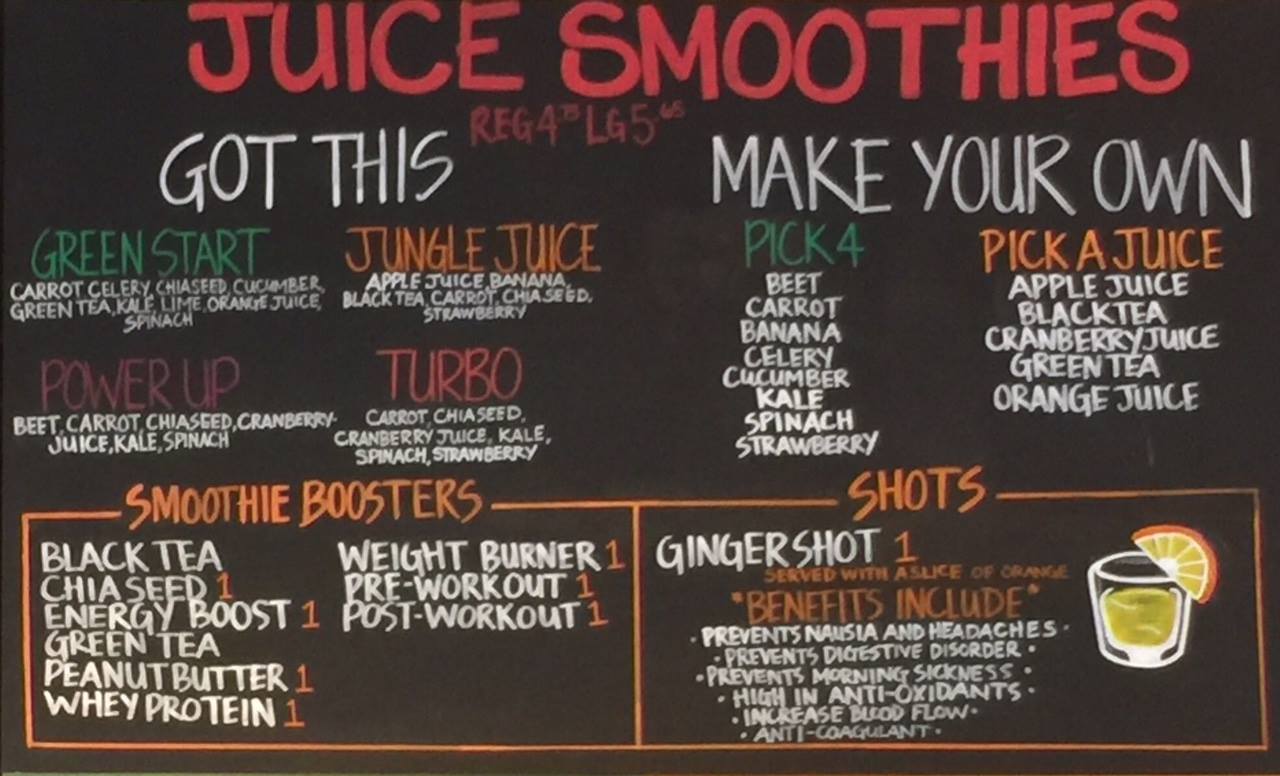 JUICE SMOOTHIES
REG 4.75 LG 5.65
GOT THIS
GREEN START
CARROT CELERY, CHIASEED, CUCUMBER,
GREEN TEA, KALE, LIME, ORANGE JUICE,
SPINACH
JUNGLE JUICE
APPLE JUICE, BANANA,
BLACK TEA, CARROT, CHIA SEED,
STRAWBERRY
POWER UP
BEET, CARROT, CHIASEED, CRANBERRY-
JUICE, KALE, SPINACH
TURBO
CARROT, CHIASEED,
CRANBERRY JUICE, KALE,
SPINACH, STRAWBERRY
MAKE YOUR OWN
PICK 4
BEET
CARROT
BANANA
CELERY
CUCUMBER
KALE
SPINACH
STRAWBERRY
PICK A JUICE
APPLE JUICE
BLACK TEA
CRANBERRY JUICE
GREEN TEA
ORANGE JUICE
SMOOTHIE BOOSTERS
BLACK TEA
CHIA SEED 1
ENERGY BOOST 1
GREEN TEA
PEANUT BUTTER 1
WHEY PROTEIN 1
WEIGHT BURNER 1
PRE-WORKOUT 1
POST-WORKOUT 1
SHOTS
GINGER SHOT 1
SERVED WITH A SLICE OF ORANGE
*BENEFITS INCLUDE*
• PREVENTS NAUSIA AND HEADACHES •
• PREVENTS DIGESTIVE DISORDER •
• PREVENTS MORNING SICKNESS •
• HIGH IN ANTI-OXIDANTS •
• INCREASE BLOOD FLOW •
• ANTI-COAGULANT •